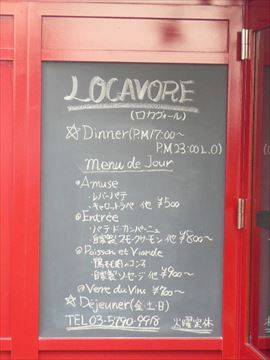 LOCAVORE
(ロカヴォール)
☆Dinner(P.M17:00〜
P.M23:00L.O)
Menu de Jour
Amuse
・レバーパテ
・キャロットラペ 他 ¥500
Entrée
・パテ ド カンパーニュ
・自家製スモークサーモン 他 ¥800〜
Poisson et Viande
・鴨もも肉のコンフィ
・自家製ソーセージ 他 ¥900〜
Verre du Vins ¥700〜
☆Déjeuner(金.土.日)
TEL03-5790-9918 火曜定休